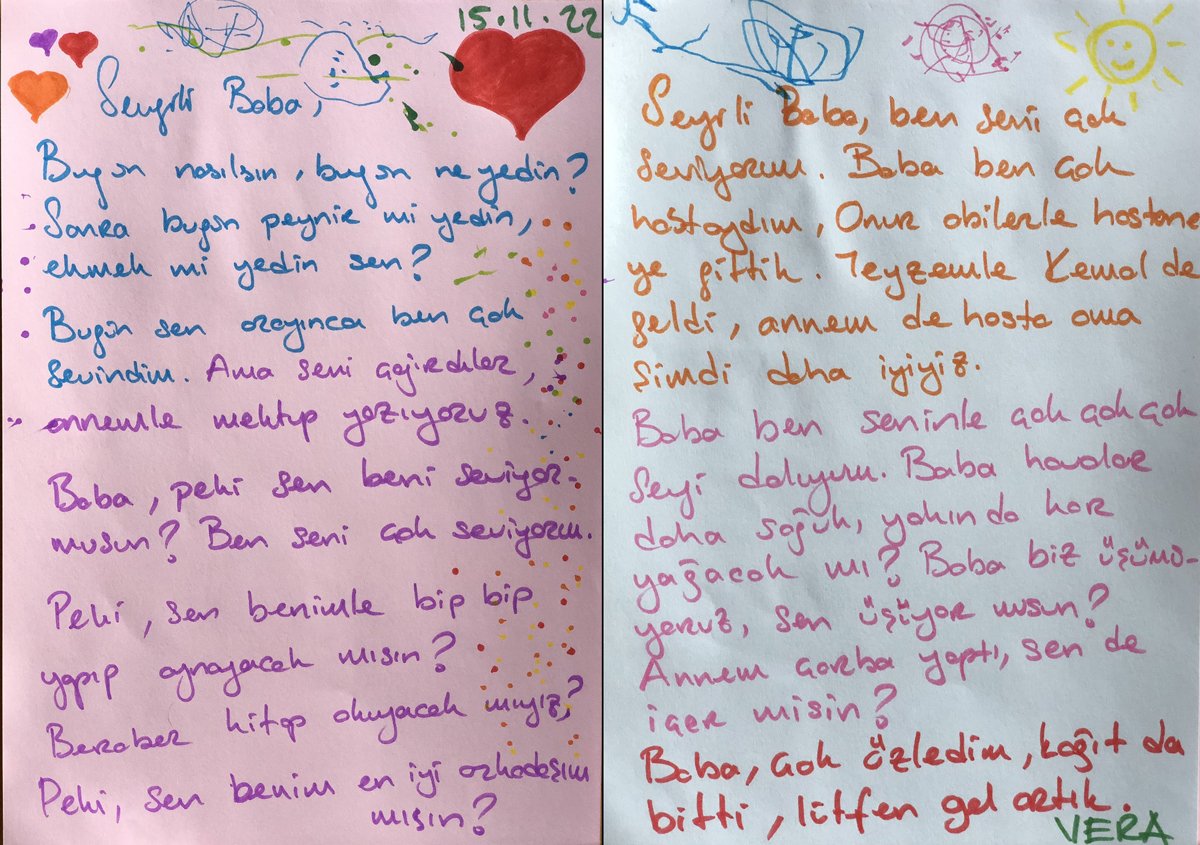 15.11.22
Sevgili Baba,
Bugün nasılsın, bugün ne yedin?
Sonra bugün peynir mi yedin,
ekmek mi yedin sen?
Bugün sen arayınca ben çok
sevindim. Ama seni çağırdılar,
annemle mektup yazıyoruz.
Baba, peki sen beni seviyor-
musun? Ben seni çok seviyorum.
Peki, sen benimle bip bip
yapıp oynayacak mısın?
Beraber kitap okuyacak mıyız?
Peki, sen benim en iyi arkadaşım
mısın?
Sevgili Baba, ben seni çok
seviyorum. Baba ben çok
hastaydım, Onur abilerle hastane
ye gittik. Teyzemle Kemal de
geldi, annem de hasta ama
şimdi daha iyiyiz.
Baba ben seninle çok çok çok
şeyi doluyum. Baba havalar
daha soğuk, yakında kar
yağacak mı? Baba biz üşümü-
yoruz, sen üşüyor musun?
Annem çorba yaptı, sen de
içer misin?
Baba, çok özledim, kağıt da
bitti, lütfen gel artık.
VERA